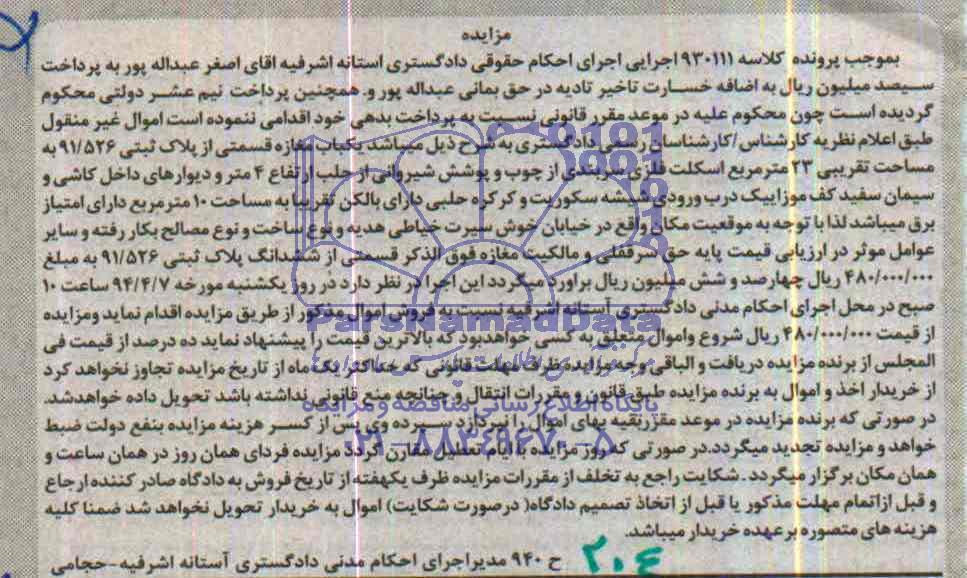 مزایده
بموجب پرونده کلاسه ۹۳۰۱۱۱ اجرایی اجرای احکام حقوقی دادگستری استانه اشرفیه اقای اصغر عبداله پور به پرداخت
سیصد میلیون ریال به اضافه خسارت تاخیر تادیه در حق بمانی عبداله پور و. همچنین پرداخت نیم عشر دولتی محکوم
گردیده است چون محکوم علیه در موعد مقرر قانونی نسبت به پرداخت بدهی خود اقدامی ننموده است اموال غیر منقول
طبق اعلام نظریه کارشناس/کارشناسان رسمی دادگستری به شرح ذیل میباشد یکباب مغازه قسمتی از پلاک ثبتی ۹۱/۵۲۶ به
مساحت تقریبی ۲۳ مترمربع اسکلت فلزی سربندی از چوب و پوشش شیروانی از حلب ارتفاع ۴ متر و دیوارهای داخل کاشی و
سیمان سفید کف موزاییک درب ورودی شیشه سکوریت و کرکره حلبی دارای بالکن تقریبا به مساحت ۱۰ مترمربع دارای امتیاز
برق میباشد لذا با توجه به موقعیت مکان واقع در خیابان خوش سیرت خیاطی هدیه و نوع ساخت و نوع مصالح بکار رفته و سایر
عوامل موثر در ارزیابی قیمت پایه حق سرقفلی و مالکیت مغازه فوق الذکر قسمتی از ششدانگ پلاک ثبتی ۹۱/۵۲۶ به مبلغ
۴۸۰/۰۰۰/۰۰۰ ریال چهارصد و شش میلیون ریال براورد میگردد این اجرا در نظر دارد در روز یکشنبه مورخه ۹۴/۴/۷ ساعت ۱۰
صبح در محل اجرای احکام مدنی دادگستری آستانه اشرفیه نسبت به فروش اموال مذکور از طریق مزایده اقدام نماید ومزایده
از قیمت ۴۸۰/۰۰۰/۰۰۰ ریال شروع واموال متعلق به کسی خواهدبود که بالاترین قیمت را پیشنهاد نماید ده درصد از قیمت فی
المجلس از برنده مزایده دریافت و الباقی وجه مزایده ظرف مهلت قانونی که حداکثر یک ماه از تاریخ مزایده تجاوز نخواهد کرد
از خریدار اخذ و اموال به برنده مزایده طبق قانون و مقررات انتقال و چنانچه منع قانونی نداشته باشد تحویل داده خواهدشد.
در صورتی که برنده مزایده در موعد مقرر بقیه بهای اموال را نپردازد سپرده وی پس از کسر هزینه مزایده بنفع دولت ضبط
خواهد و مزایده تجدید میگردد.در صورتی که روز مزایده با ایام تعطیل مقارن گردد مزایده فردای همان روز در همان ساعت و
همان مکان برگزار میگردد . شکایت راجع به تخلف از مقررات مزایده ظرف یکهفته از تاریخ فروش به دادگاه صادر کننده ارجاع
و قبل ازاتمام مهلت مذکور یا قبل از اتخاذ تصمیم دادگاه( درصورت شکایت) اموال به خریدار تحویل نخواهد شد ضمنا کلیه
هزینه های متصوره بر عهده خریدار میباشد.
ح ۹۴۰ مدیراجرای احکام مدنی دادگستری آستانه اشرفیه-حجامی
۲۰۴
ParsNamadData
پایگاه اطلاع رسانی مناقصه و مزایده
۰۲۱-۸۸۳۴۹۶۷۰-۵